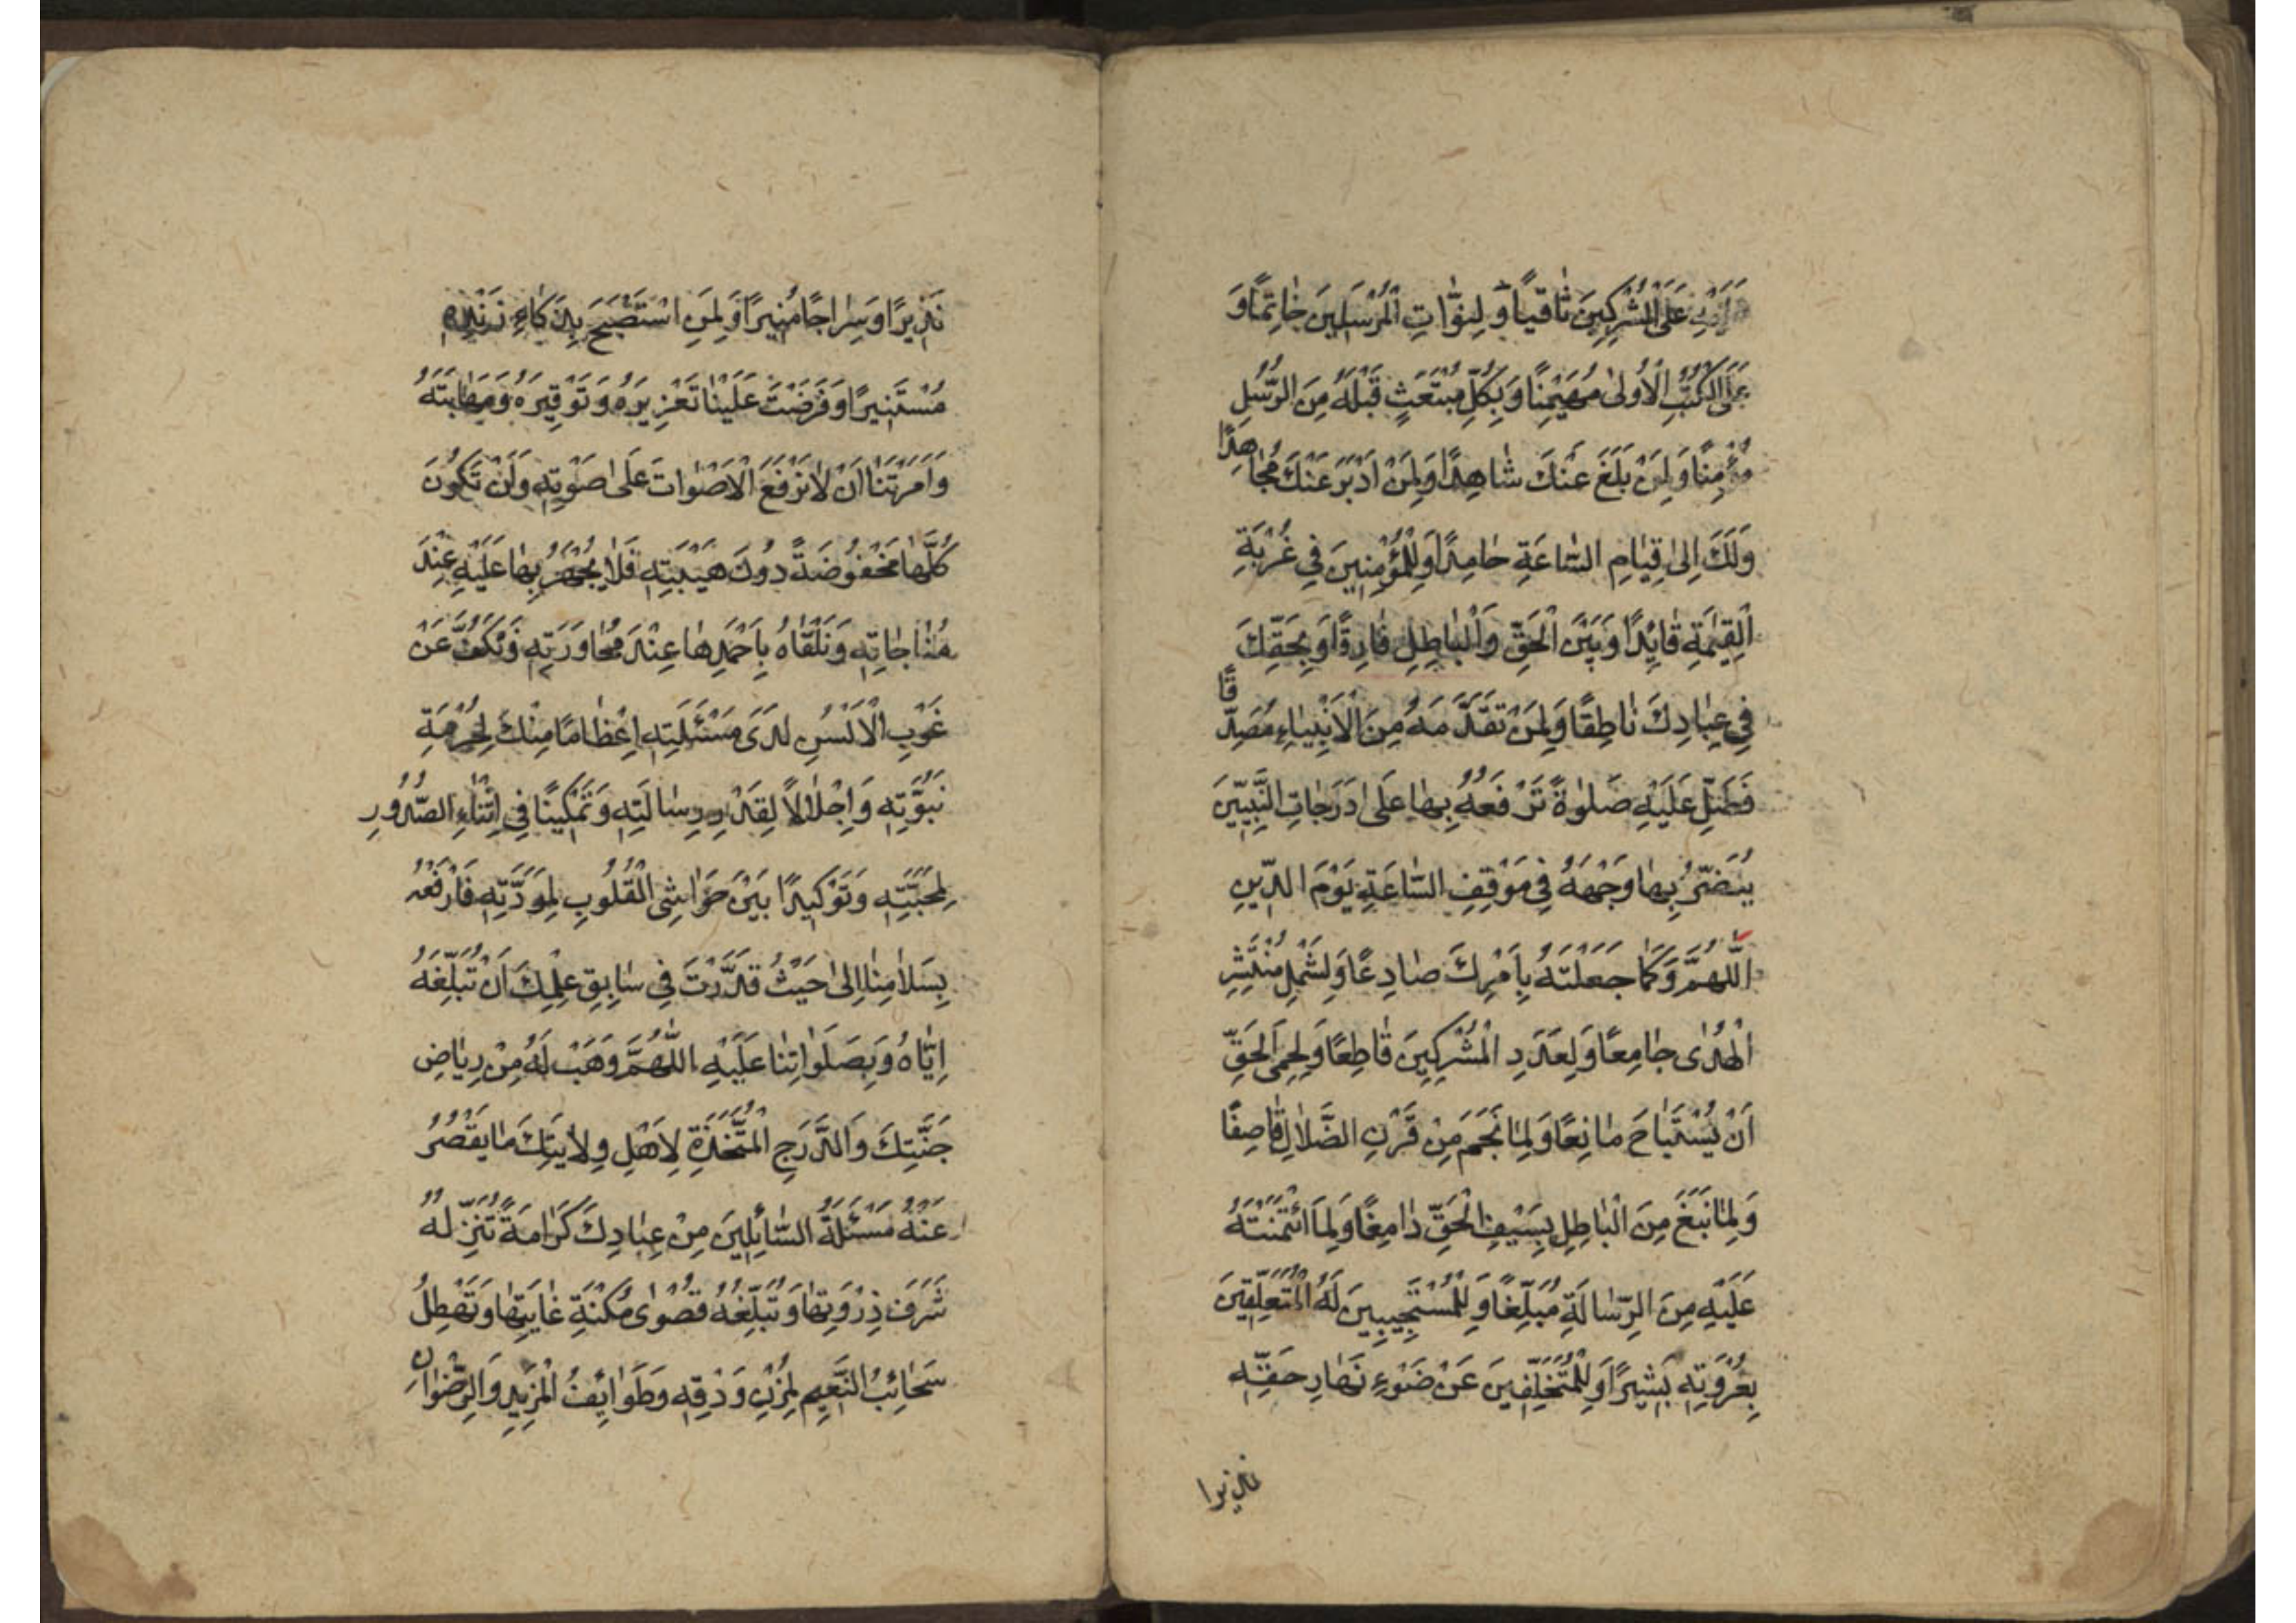 عَلَى الْمُشْرِكِينَ ثَاقِبًا وَلِنُبُوَّاتِ الْمُرْسَلِينَ خَاتِمًا وَ
عَلَى الْكُتُبِ الْأُولَىٰ مُهَيْمِنًا وَبِكُلِّ مُبْتَعَثٍ قَبْلَهُ مِنَ الرُّسُلِ
مُؤْمِنًا وَلِمَنْ بَلَّغَ عَنْكَ شَاهِدًا وَلِمَنْ أَدْبَرَ عَنْكَ مُجَاهِدًا
وَلَكَ اِلىٰ قِيٰامِ السّٰاعَةِ حٰامِدًا وَلِلْمُؤْمِنِينَ فِي غُرْبَةِ
الْقِيٰمَةِ قٰائِدًا وَبَيْنَ الْحَقِّ وَالْبٰاطِلِ فٰارِقًا وَبِحَقِّكَ
فِي عِبٰادِكَ نٰاطِقًا وَلِمَنْ تَقَدَّمَهُ مِنَ الْاَنْبِيٰاءِ مُصَدِّقًا
فَصَلِّ عَلَيْهِ صَلوٰةً تَرْفَعُهُ بِهٰا عَلىٰ دَرَجٰاتِ النَّبِيّينَ
يُنَضَّرُ بِهٰا وَجْهُهُ فِي مَوْقِفِ السّٰاعَةِ يَوْمَ الدّينِ
اَللّٰهُمَّ وَكَمٰا جَعَلْتَهُ بِاَمْرِكَ صٰادِعًا وَلِشَمْلِ مُنْتَشِرِ
الْهُدٰى جٰامِعًا وَلِعَدَدِ الْمُشْرِكِينَ قٰاطِعًا وَلِحِمَى الْحَقِّ
اَنْ يُسْتَبٰاحَ مٰانِعًا وَلِمٰا نَجَمَ مِنْ قَرْنِ الضَّلٰالِ قٰاصِفًا
وَلِمٰا نَبَغَ مِنَ الْبٰاطِلِ بِسَيْفِ الْحَقِّ دٰامِغًا وَلِمَا ائْتَمَنْتَهُ
عَلَيْهِ مِنَ الرِّسٰالَةِ مُبَلِّغًا وَلِلْمُسْتَجِيبِينَ لَهُ الْمُتَعَلِّقِينَ
بِعُرْوَتِهِ بَشِيرًا وَلِلْمُتَخَلِّفِينَ عَنْ ضَوْءِ نَهٰارِ حَقِّهِ
نذيرا
نَذِيرًا وَسِرٰاجًا مُنِيرًا وَلِمَنِ اسْتَصْبَحَ بِذَكٰاءِ زَنْدِهِ
مُسْتَنِيرًا وَفَرَضْتَ عَلَيْنٰا تَعْزِيرَهُ وَتَوْقِيرَهُ وَمَهٰابَتَهُ
وَاَمَرْتَنٰا اَنْ لٰا نَرْفَعَ الْاَصْوٰاتَ عَلىٰ صَوْتِهِ وَلَنْ تَكُونَ
كُلُّهٰا مَخْفُوضَةً دُونَ هَيْبَتِهِ فَلٰا يُجْهَرُ بِهٰا عَلَيْهِ عِنْدَ
مُنٰاجٰاتِهِ وَنَلْقٰاهُ بِاَحْمَدِهٰا عِنْدَ مُحٰاوَرَتِهِ وَنَكُفَّ عَنْ
غَرْبِ الْاَلْسُنِ لَدَى مَسْئَلَتِهِ اِعْظٰامًا مِنْكَ لِحُرْمَةِ
نُبُوَّتِهِ وَاِجْلٰالًا لِقَدْرِ رِسٰالَتِهِ وَتَمْكِينًا فِي اَثْنٰاءِ الصُّدُورِ
لِمَحَبَّتِهِ وَتَوْكِيدًا بَيْنَ حَوٰاشِي الْقُلُوبِ لِمَوَدَّتِهِ فَارْفَعْهُ
بِسَلٰامِنٰا اِلىٰ حَيْثُ قَدَّرْتَ فِي سٰابِقِ عِلْمِكَ اَنْ تُبَلِّغَهُ
اِيّٰاهُ وَبِصَلَوٰاتِنٰا عَلَيْهِ اَللّٰهُمَّ وَهَبْ لَهُ مِنْ رِيٰاضِ
جَنَّتِكَ وَالدَّرَجِ الْمُتَّخَذَةِ لِاَهْلِ وِلٰايَتِكَ مٰا يَقْصُرُ
عَنْهُ مَسْئَلَةُ السّٰائِلِينَ مِنْ عِبٰادِكَ كَرٰامَةً تُنَزِّلُهُ
شَرَفَ ذِرْوَتِهٰا وَتُبَلِّغُهُ قُصْوٰى مُكْنَةِ غٰايَتِهٰا وَتَهْطِلُ
سَحٰائِبُ النَّعِيمِ لِمُزْنِ وَدْقِهِ وَطَوٰائِفُ الْمَزِيدِ وَالرِّضْوٰانِ